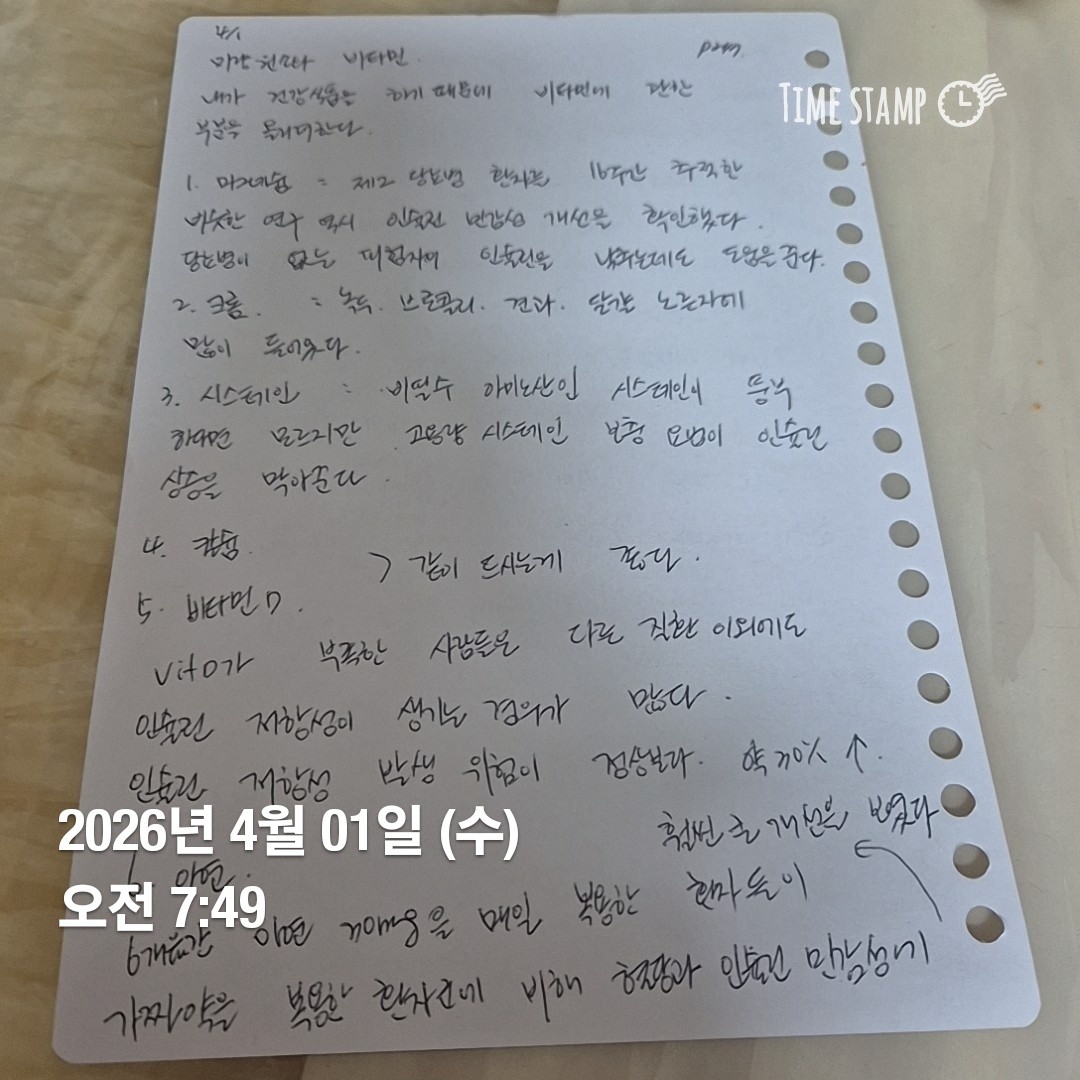 4/1
미량 원소와 비타민.
TIME STAMP
내가 건강식품을 하기 때문에 비타민에 관한
부분을 올려한다.
1. 마그네슘 : 제2 당뇨병 환자를 16주간 추적한
비슷한 연구 역시 인슐린 민감성 개선을 확인했다.
당뇨병이 없는 피험자의 인슐린을 낮추는데도 도움을 준다.
2. 크롬. : 녹두. 브로콜리. 견과. 달걀 노른자에
많이 들어있다.
3. 시스테인 : 비필수 아미노산인 시스테인이 풍부
하다면 모르지만 고용량 시스테인 보충 요법이 인슐린
상승을 막아준다.
4. 칼슘.
> 같이 드시는게 좋다.
5. 비타민D.
VitD가 부족한 사람들은 다른 질환 이외에도
인슐린 저항성이 생기는 경우가 많다.
인슐린 저항성 발생 위험이 정상보다. 약 30% ↑.
2026년 4월 01일 (수)
훨씬 큰 개선을 보였다
아연.
오전 7:49
6개월간 아연 30mg을 매일 복용한 환자들이
가짜약을 복용한 환자군에 비해 혈당과 인슐린 민감성에